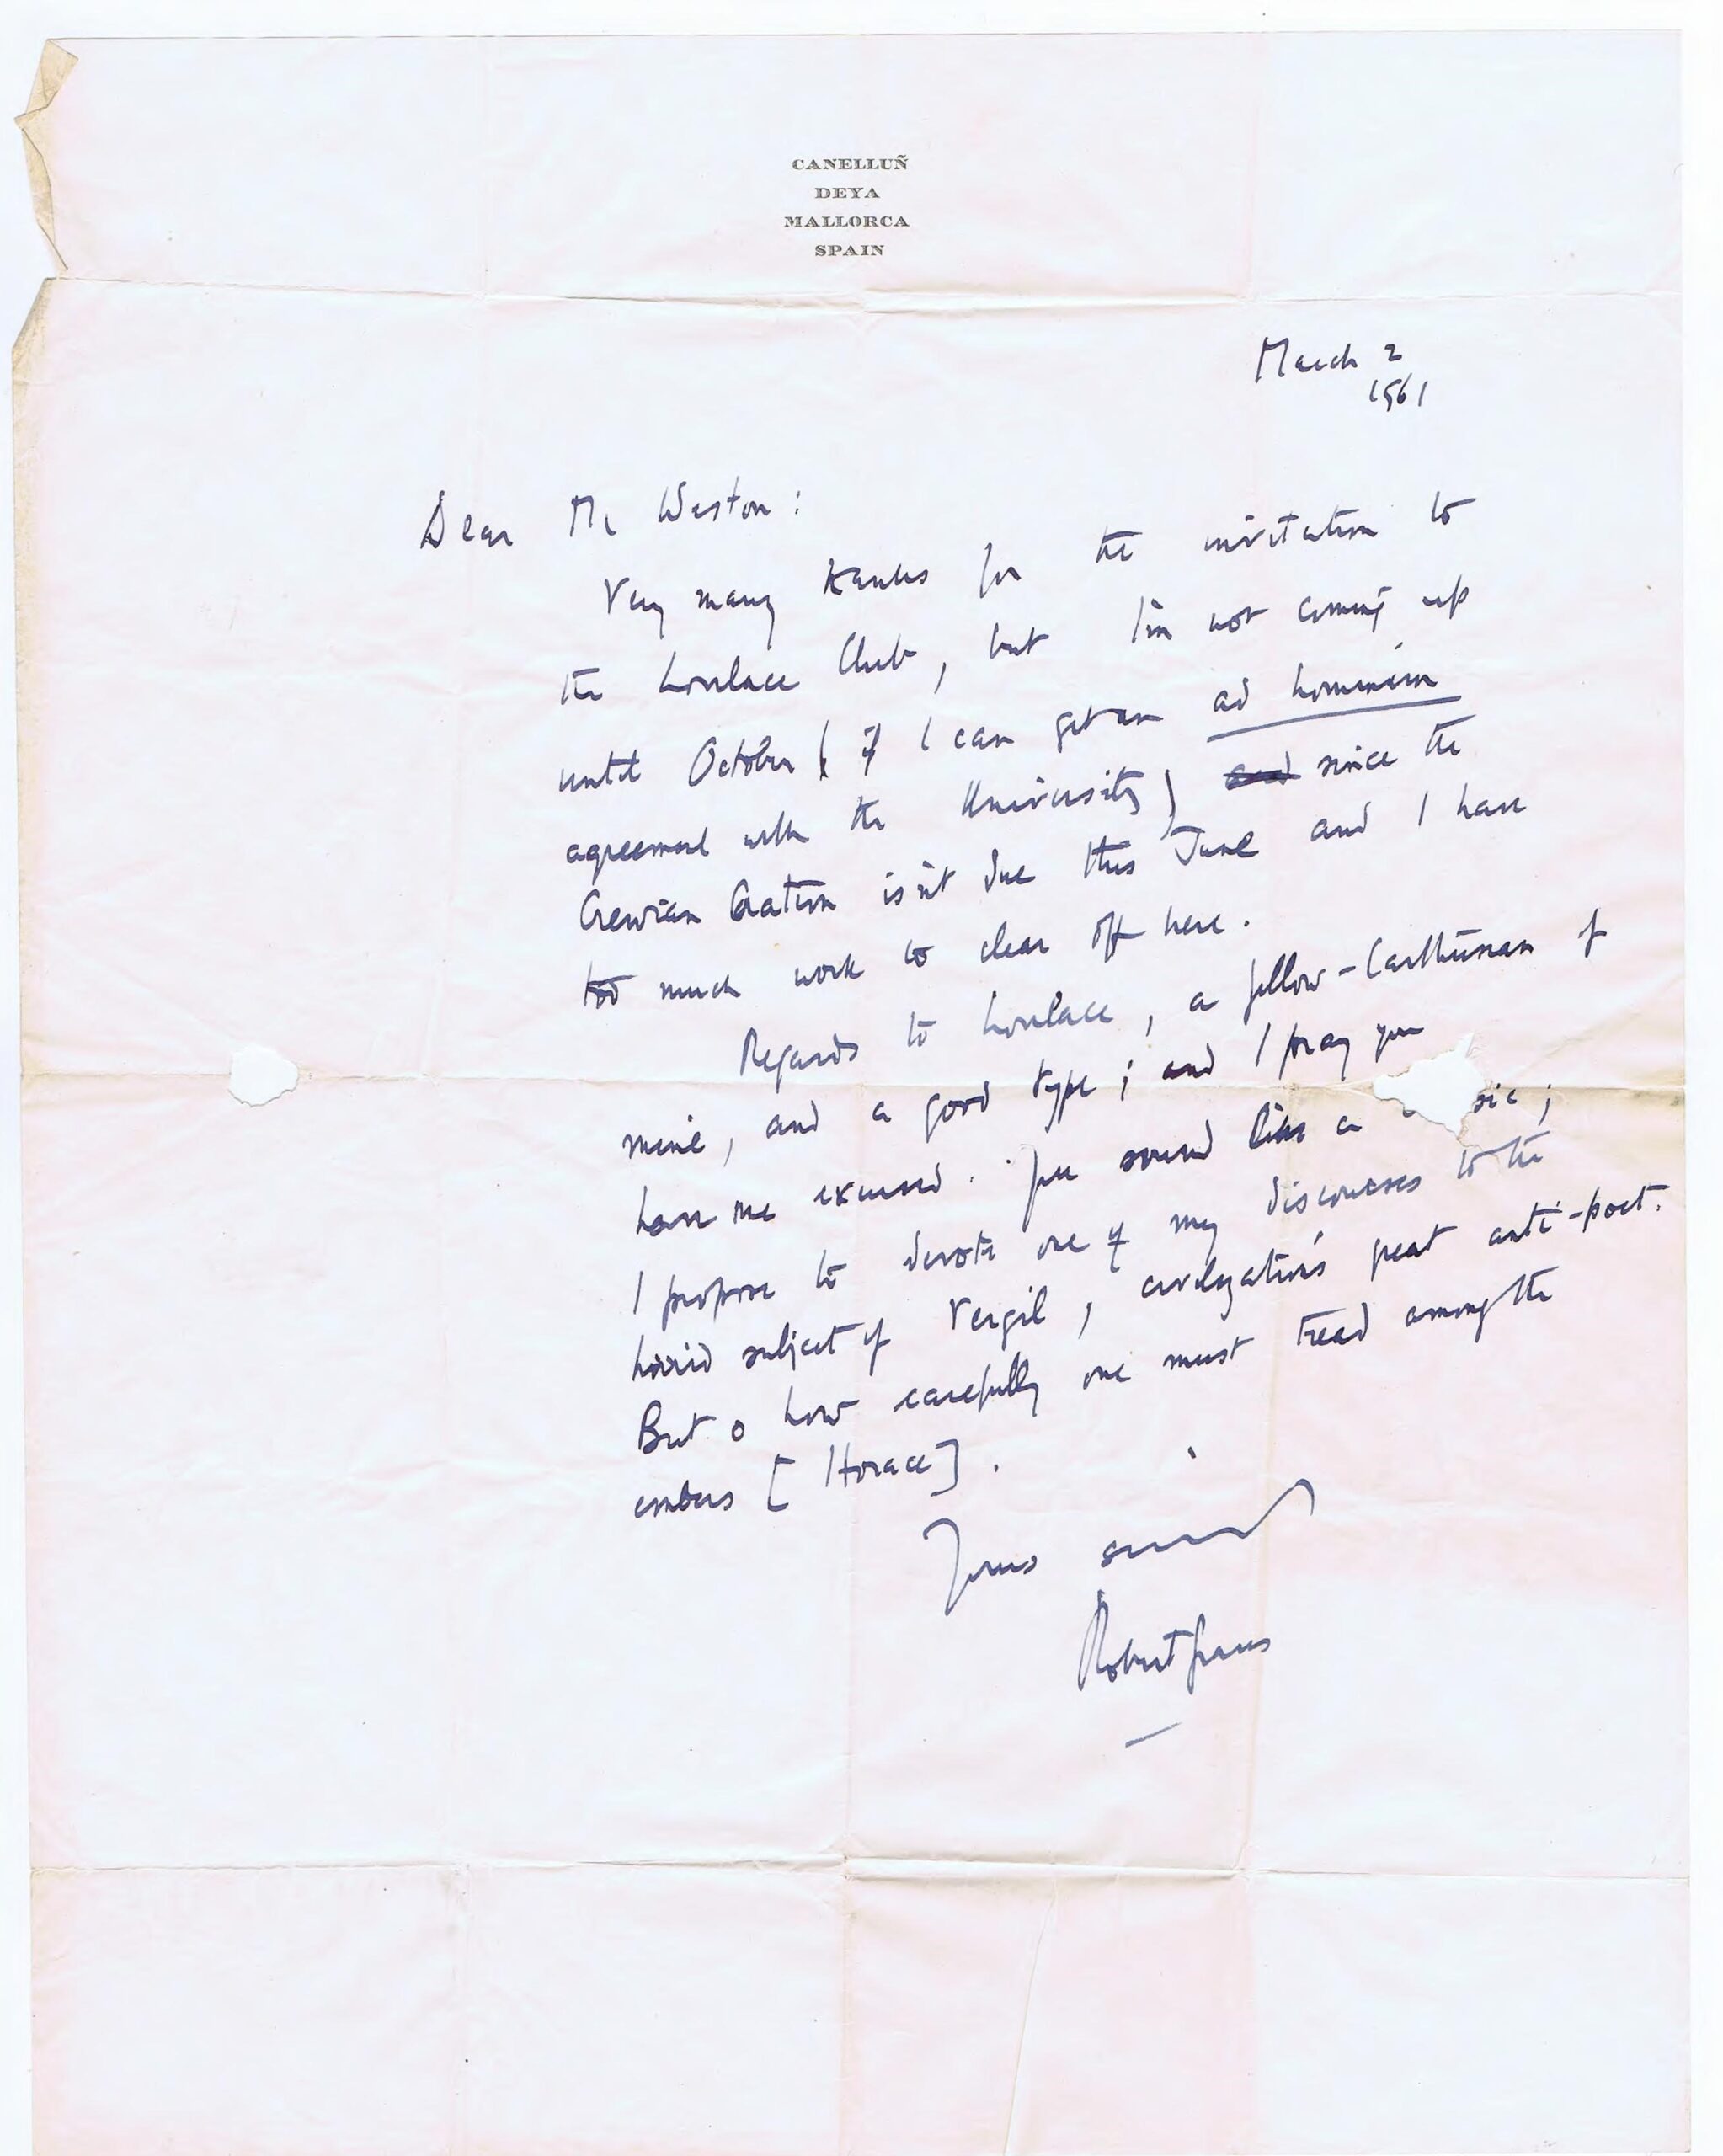 CANELLUÑ
DEYA
MALLORCA
SPAIN
March 2
1961
Dear Mr Weston:
Very many thanks for the invitation to
the Lovelace Club, but I'm not coming up
until October (if I can get an ad hominem
agreement with the University) and since the
Crewian Oration isn't due this June and I have
too much work to clear off here.
Regards to Lovelace, a fellow-Carthusian of
mine, and a good type; and I pray you
have me excused. You sound like a sic;
I propose to devote one of my discourses to the
horrid subject of Vergil, civilization's great anti-poet.
But o how carefully one must tread among the
embers [Horace].
Yours
Robert Graves